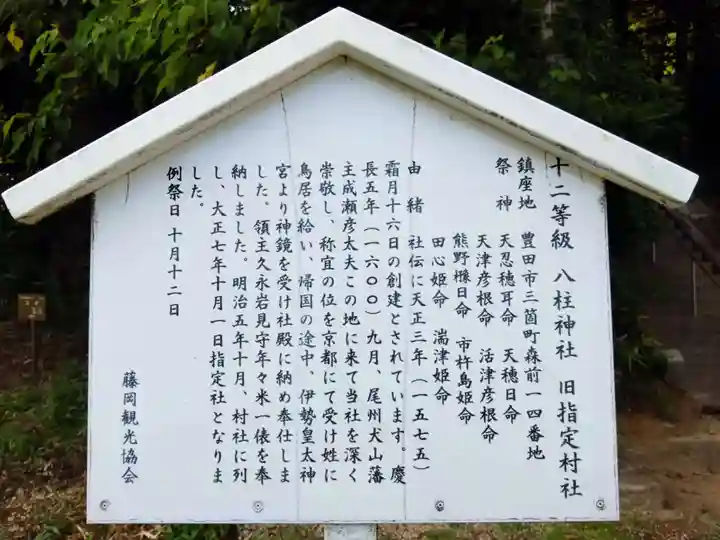 十二等級 八柱神社 旧指定村社
鎮座地 豊田市三箇町森前一四番地
祭神 天忍穂耳命 天穂日命
天津彦根命 活津彦根命
熊野櫲日命 市杵島姫命
田心姫命 湍津姫命
由緒 社伝に天正三年(一五七五)
霜月十六日の創建とされています。慶
長五年(一六〇〇)九月、尾州犬山藩
主成瀬彦太夫この地に来て当社を深く
崇敬し、称宜の位を京都にて受け姓に
鳥居を給い、帰国の途中、伊勢皇太神
宮より神鏡を受け社殿に納め奉仕しま
した。領主久永岩見守年々米一俵を奉
納しました。明治五年十月、村社に列
し、大正七年十月一日指定社となりま
した。
例祭日 十月十二日
藤岡観光協会